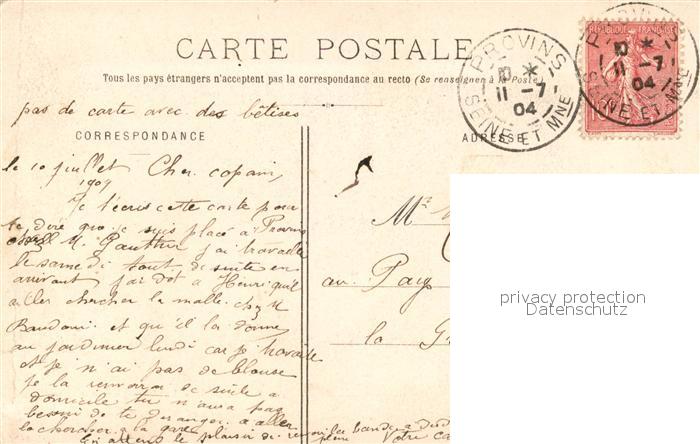 CARTE POSTALE
Tous les pays étrangers n'acceptent pas la correspondance au recto (Se renseigner à la Poste)
pas de carte avec des bêtises
CORRESPONDANCE
ADRESSE
PROVINS
11 -7
04
SEINE ET MNE
REPUBLIQUE FRANÇAISE
PROVINS
11 -7
04
SEINE ET MNE
le 10 juillet Cher copain,
1904
Je t'écris cette carte pour
te dire que je suis placé à Provins
chez M. Gauthier j'ai travaillé
le samedi tout de suite en
arrivant j'ai dit à Henri qu'il
aller chercher la malle chez M
et qu'il la donne
au jardinier lundi car je travaille
et je n'ai pas de blouse
je la de suite à
domicile tu n'aura pas
besoin de te déranger à aller
la chercher à la gare
le plaisir de
Mr
au Pay
la
privacy protection
Datenschutz